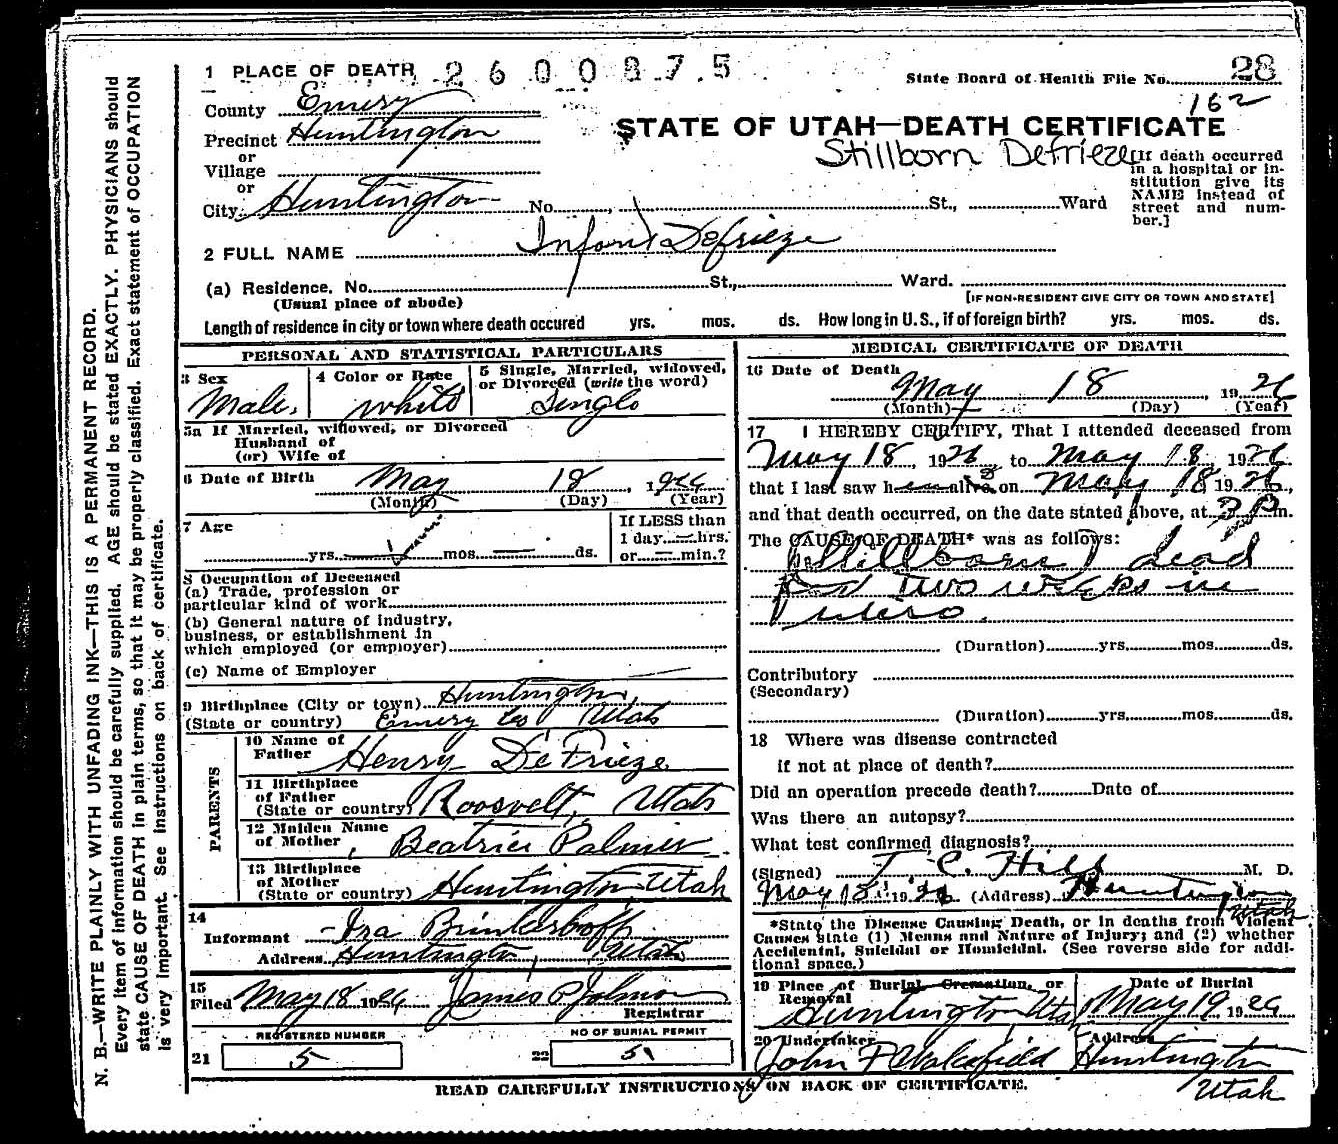 1 PLACE OF DEATH 2600875
State Board of Health File No. 28
162
County Emery
Precinct Huntington
or
Village
or
City Huntington No. St., Ward
STATE OF UTAH—DEATH CERTIFICATE
Stillborn DeFrieze
[If death occurred
in a hospital or in-
stitution give its
NAME instead of
street and num-
ber.]
2 FULL NAME Infant DeFrieze
(a) Residence. No. St., Ward.
(Usual place of abode)
[IF NON-RESIDENT GIVE CITY OR TOWN AND STATE]
Length of residence in city or town where death occured yrs. mos. ds. How long in U. S., if of foreign birth? yrs. mos. ds.
PERSONAL AND STATISTICAL PARTICULARS
3 Sex
Male
4 Color or Race
White
5 Single, Married, widowed,
or Divorced (write the word)
Single
5a If Married, widowed, or Divorced
Husband of
(or) Wife of
6 Date of Birth May 18, 1926
(Month) (Day) (Year)
7 Age
yrs. mos. ds.
If LESS than
1 day hrs.
or min.?
8 Occupation of Deceased
(a) Trade, profession or
particular kind of work
(b) General nature of industry,
business, or establishment in
which employed (or employer)
(c) Name of Employer
9 Birthplace (City or town) Huntington,
(State or country) Emery Co Utah
PARENTS
10 Name of
Father Henry DeFrieze
11 Birthplace
of Father
(State or country) Roosvelt, Utah
12 Maiden Name
of Mother Beatrice Palmer
13 Birthplace
of Mother
(State or country) Huntington Utah
14
Informant Ira Brinkerhoff
Address Huntington, Utah
15
Filed May 18 1926 James P Johnson
Registrar
REGISTERED NUMBER
21 5
NO OF BURIAL PERMIT
22 5
MEDICAL CERTIFICATE OF DEATH
16 Date of Death
May 18, 1926
(Month) (Day) (Year)
17 I HEREBY CERTIFY, That I attended deceased from
May 18, 1926 to May 18 1926
that I last saw h alive on May 18 1926,
and that death occurred, on the date stated above, at 3 P m.
The CAUSE OF DEATH* was as follows:
(Stillborn) dead
two weeks in
utero.
(Duration) yrs. mos. ds.
Contributory
(Secondary)
(Duration) yrs. mos. ds.
18 Where was disease contracted
if not at place of death?
Did an operation precede death? Date of
Was there an autopsy?
What test confirmed diagnosis?
(Signed) T. C. Hill M. D.
May 18 1926 (Address) Huntington
Utah
*State the Disease Causing Death, or in deaths from Violent
Causes state (1) Menns and Nature of Injury; and (2) whether
Accidental, Suicidal or Homicidal. (See reverse side for addi-
tional space.)
19 Place of Burial, Cremation, or
Removal
Huntington Utah
Date of Burial
May 19 1926
20 Undertaker
John F Wakefield
Address
Huntington
Utah
READ CAREFULLY INSTRUCTIONS ON BACK OF CERTIFICATE.
N. B.—WRITE PLAINLY WITH UNFADING INK—THIS IS A PERMANENT RECORD.
Every item of information should be carefully supplied. AGE should be stated EXACTLY. PHYSICIANS should
state CAUSE OF DEATH in plain terms, so that it may be properly classified. Exact statement of OCCUPATION
is very important. See instructions on back of certificate.